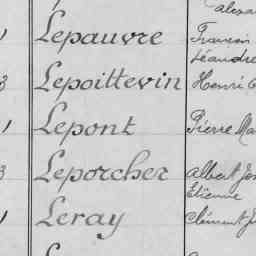 Lepauvre
Léandre
3 Lepoittevin Henri
1 Lepont Pierre
3 Leporcher Albert
Etienne
1 Leray Clément